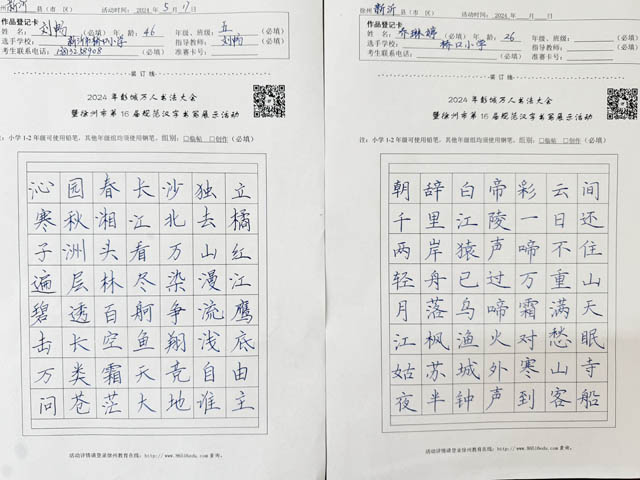 徐州 新沂 县（市 区） 活动时间：2024 年 5 月 17 日
作品登记卡
刘畅 年 龄：46 年级、班级：五 （必填）
选手学校：新沂市桥口小学 指导教师：刘畅 （必填）
考生联系电话： 准赛卡号：
装 订 线
2024 年彭城万人书法大会
暨徐州市第 16 届规范汉字书写展示活动
注：小学 1-2 年级可使用铅笔，其他年级组均须使用钢笔。组别：□临帖 □创作（必填）
沁园春长沙独立
寒秋湘江北去橘
子洲头看万山红
遍层林尽染漫江
碧透百舸争流鹰
击长空鱼翔浅底
万类霜天竞自由
问苍茫大地谁主
活动详情请登录徐州教育在线：http://www.9651hedu.com 查询。
徐州 新沂 县（市 区） 活动时间：2024 年 月 日
作品登记卡
乔琳婷 年 龄：26 年级、班级： （必填）
选手学校：桥口小学 指导教师： （必填）
考生联系电话： 准赛卡号：
装 订 线
2024 年彭城万人书法大会
暨徐州市第 16 届规范汉字书写展示活动
注：小学 1-2 年级可使用铅笔，其他年级组均须使用钢笔。组别：□临帖 □创作（必填）
朝辞白帝彩云间
千里江陵一日还
两岸猿声啼不住
轻舟已过万重山
月落乌啼霜满天
江枫渔火对愁眠
姑苏城外寒山寺
夜半钟声到客船
活动详情请登录徐州教育在线：http://www.9651hedu.com 查询。